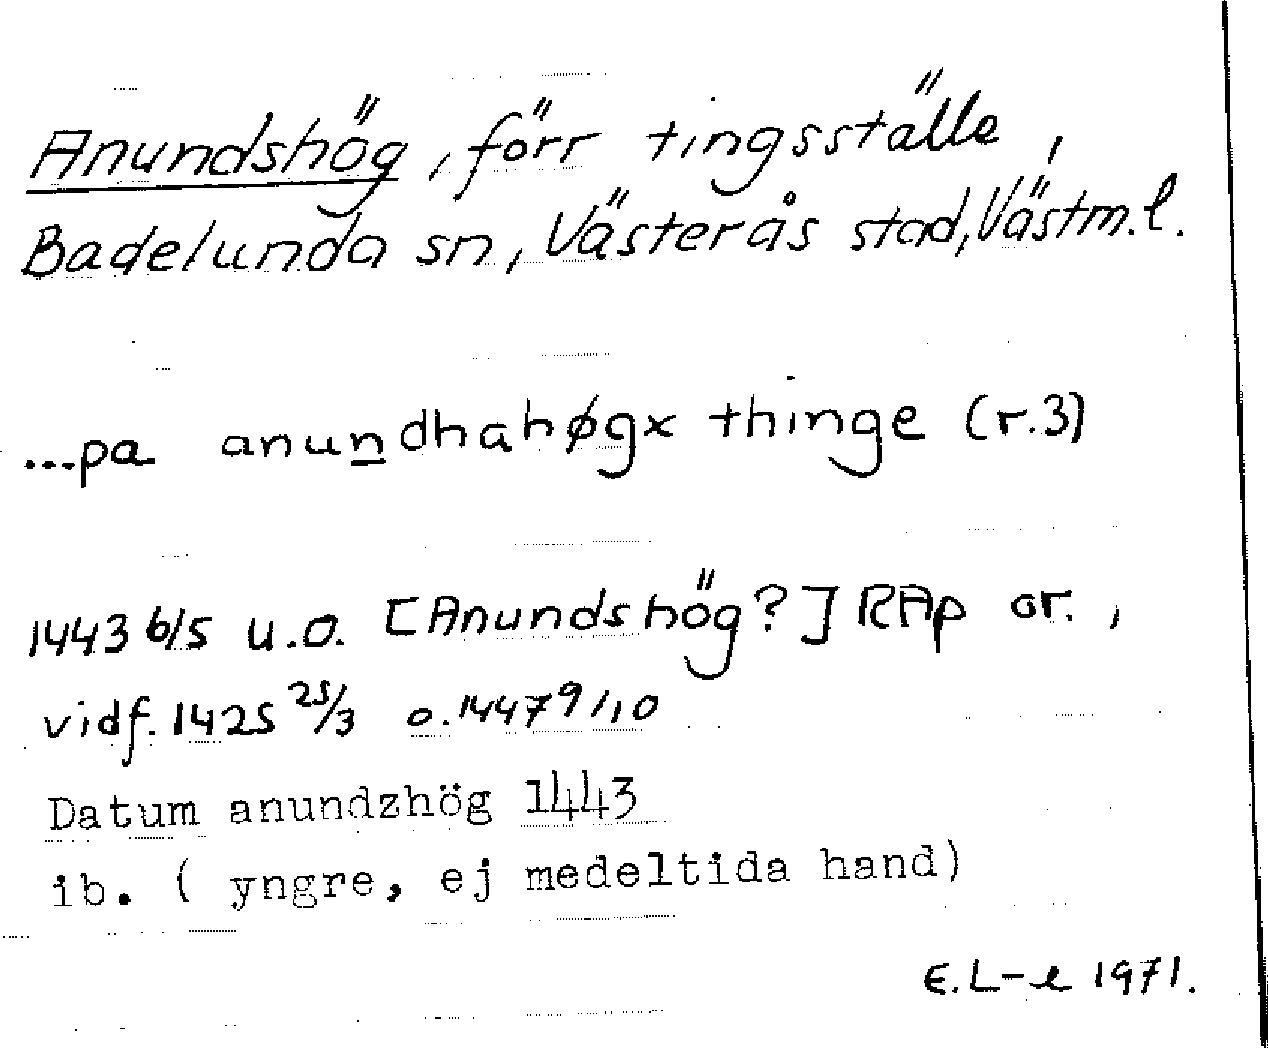 Anundshög, förr tingsställe,
Badelunda sn, Västerås stad, Västm.l.
...pa anundhahøgx thinge (r.3)
1443 6/5 u.o. [Anundshög?] RAp or.,
vidf. 1425 25/3 o. 1447 9/10
Datum anundzhög 1443
ib. ( yngre, ej medeltida hand)
E.L-e 1971.